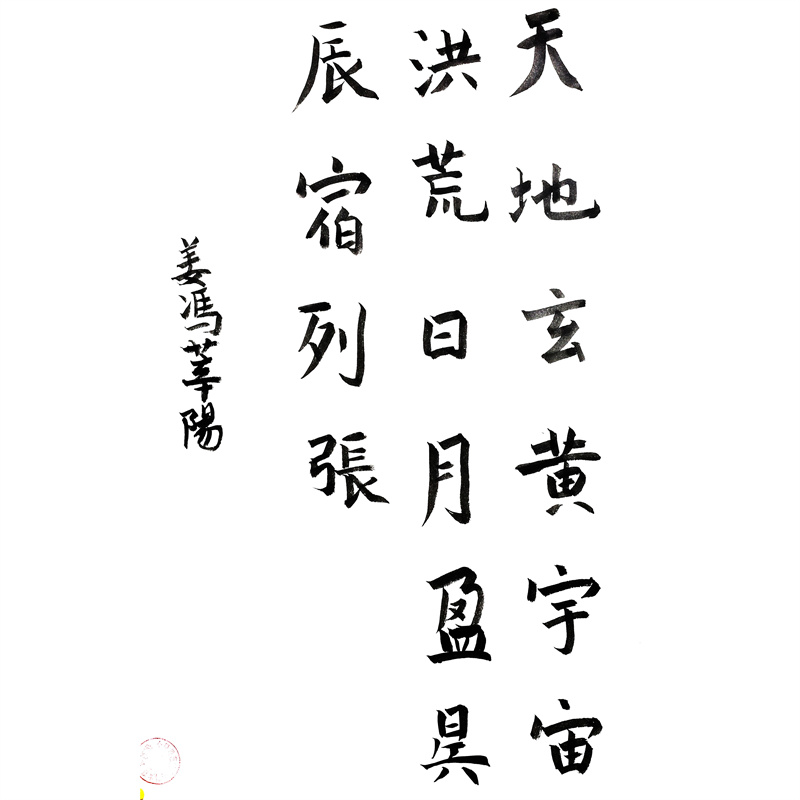 天地玄黄宇宙
洪荒日月盈昃
辰宿列張
姜馮莘陽